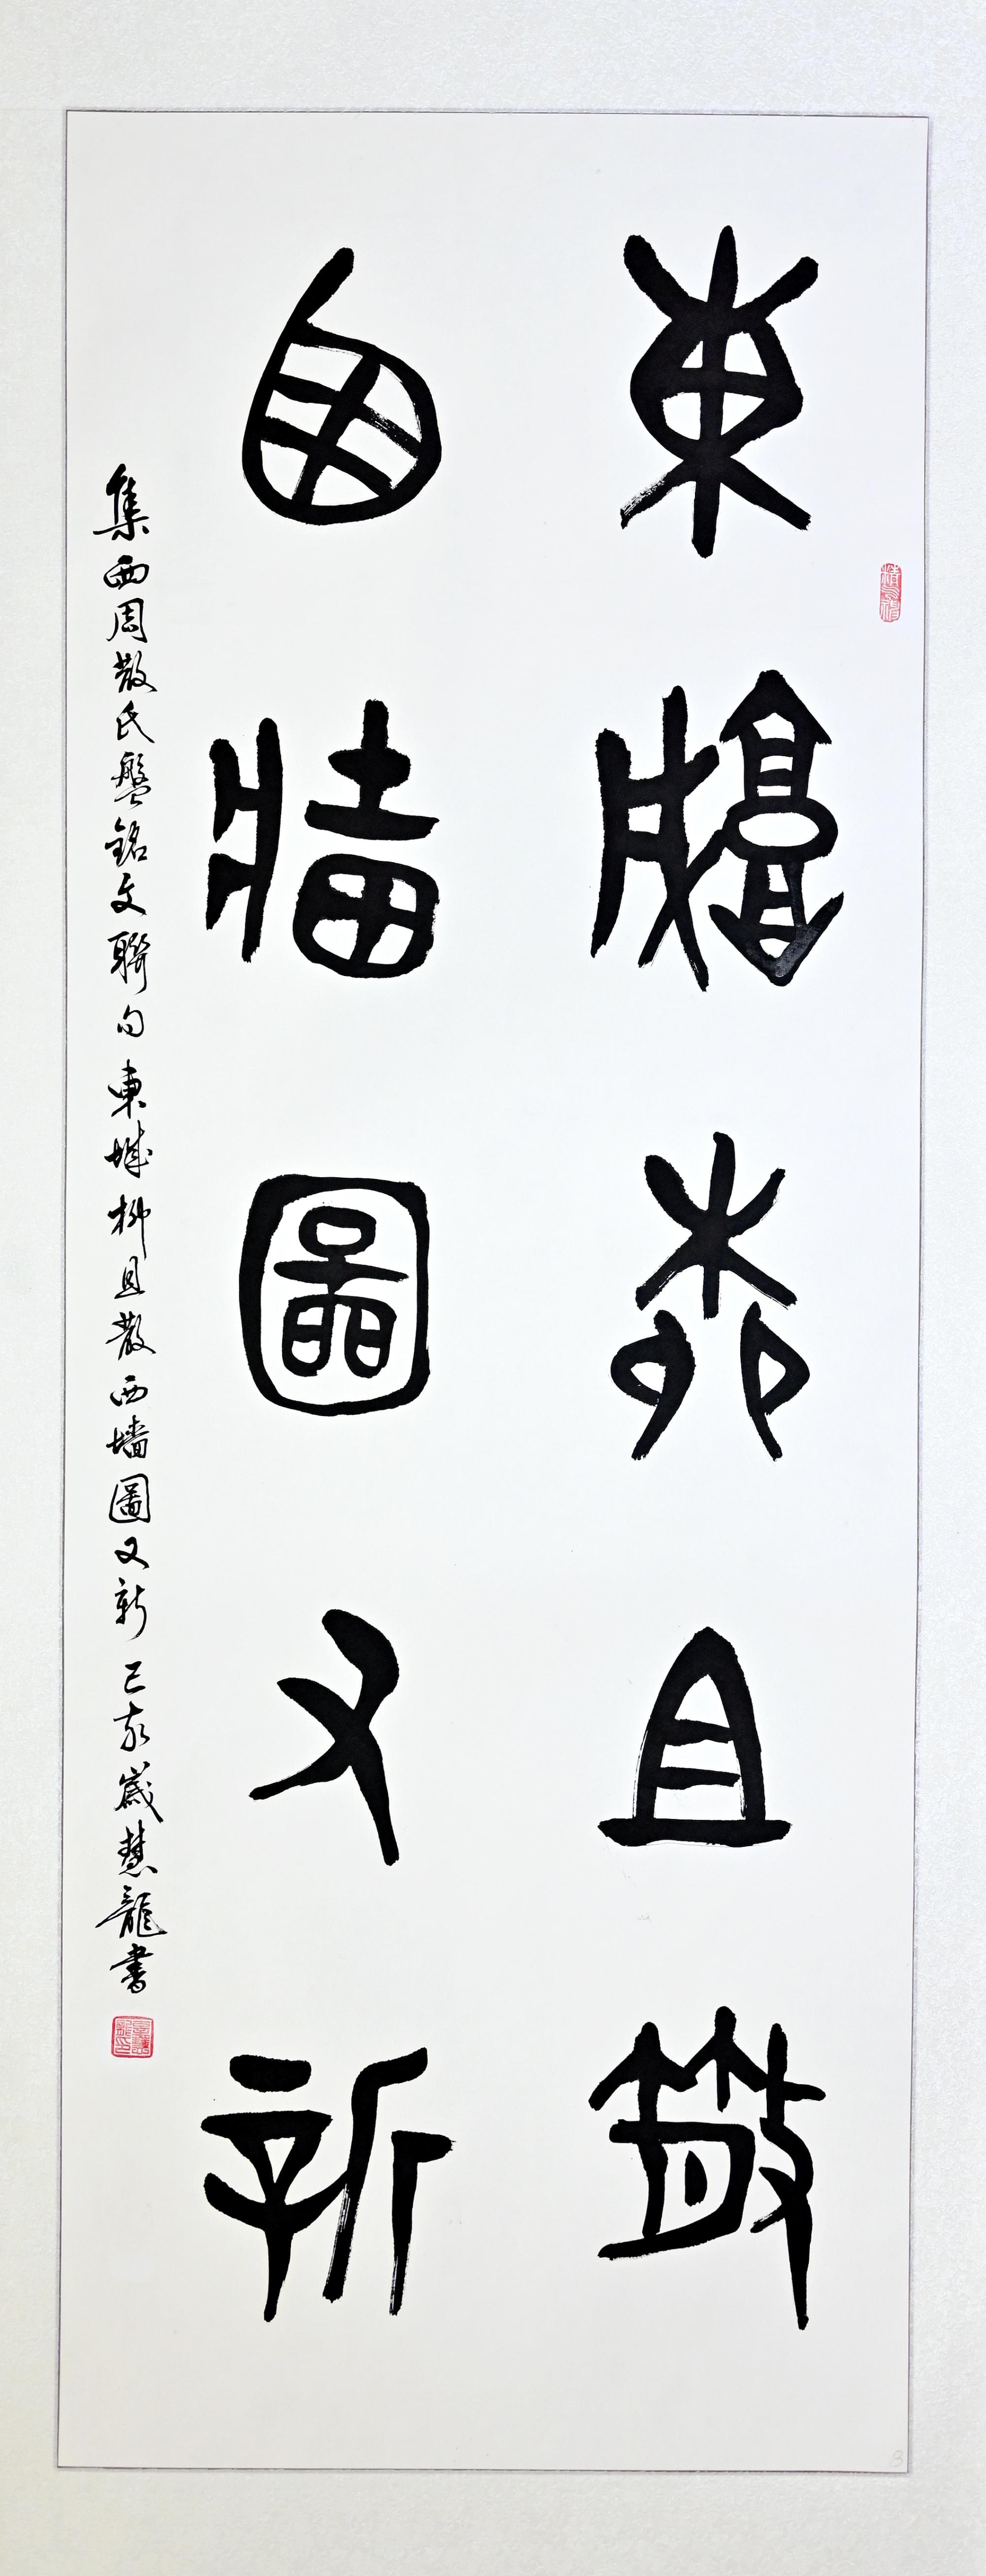 東城柳且散
西牆圖又新
集西周散氏盤銘文聯句東城柳且散西墻圖又新己亥歲慧龍書